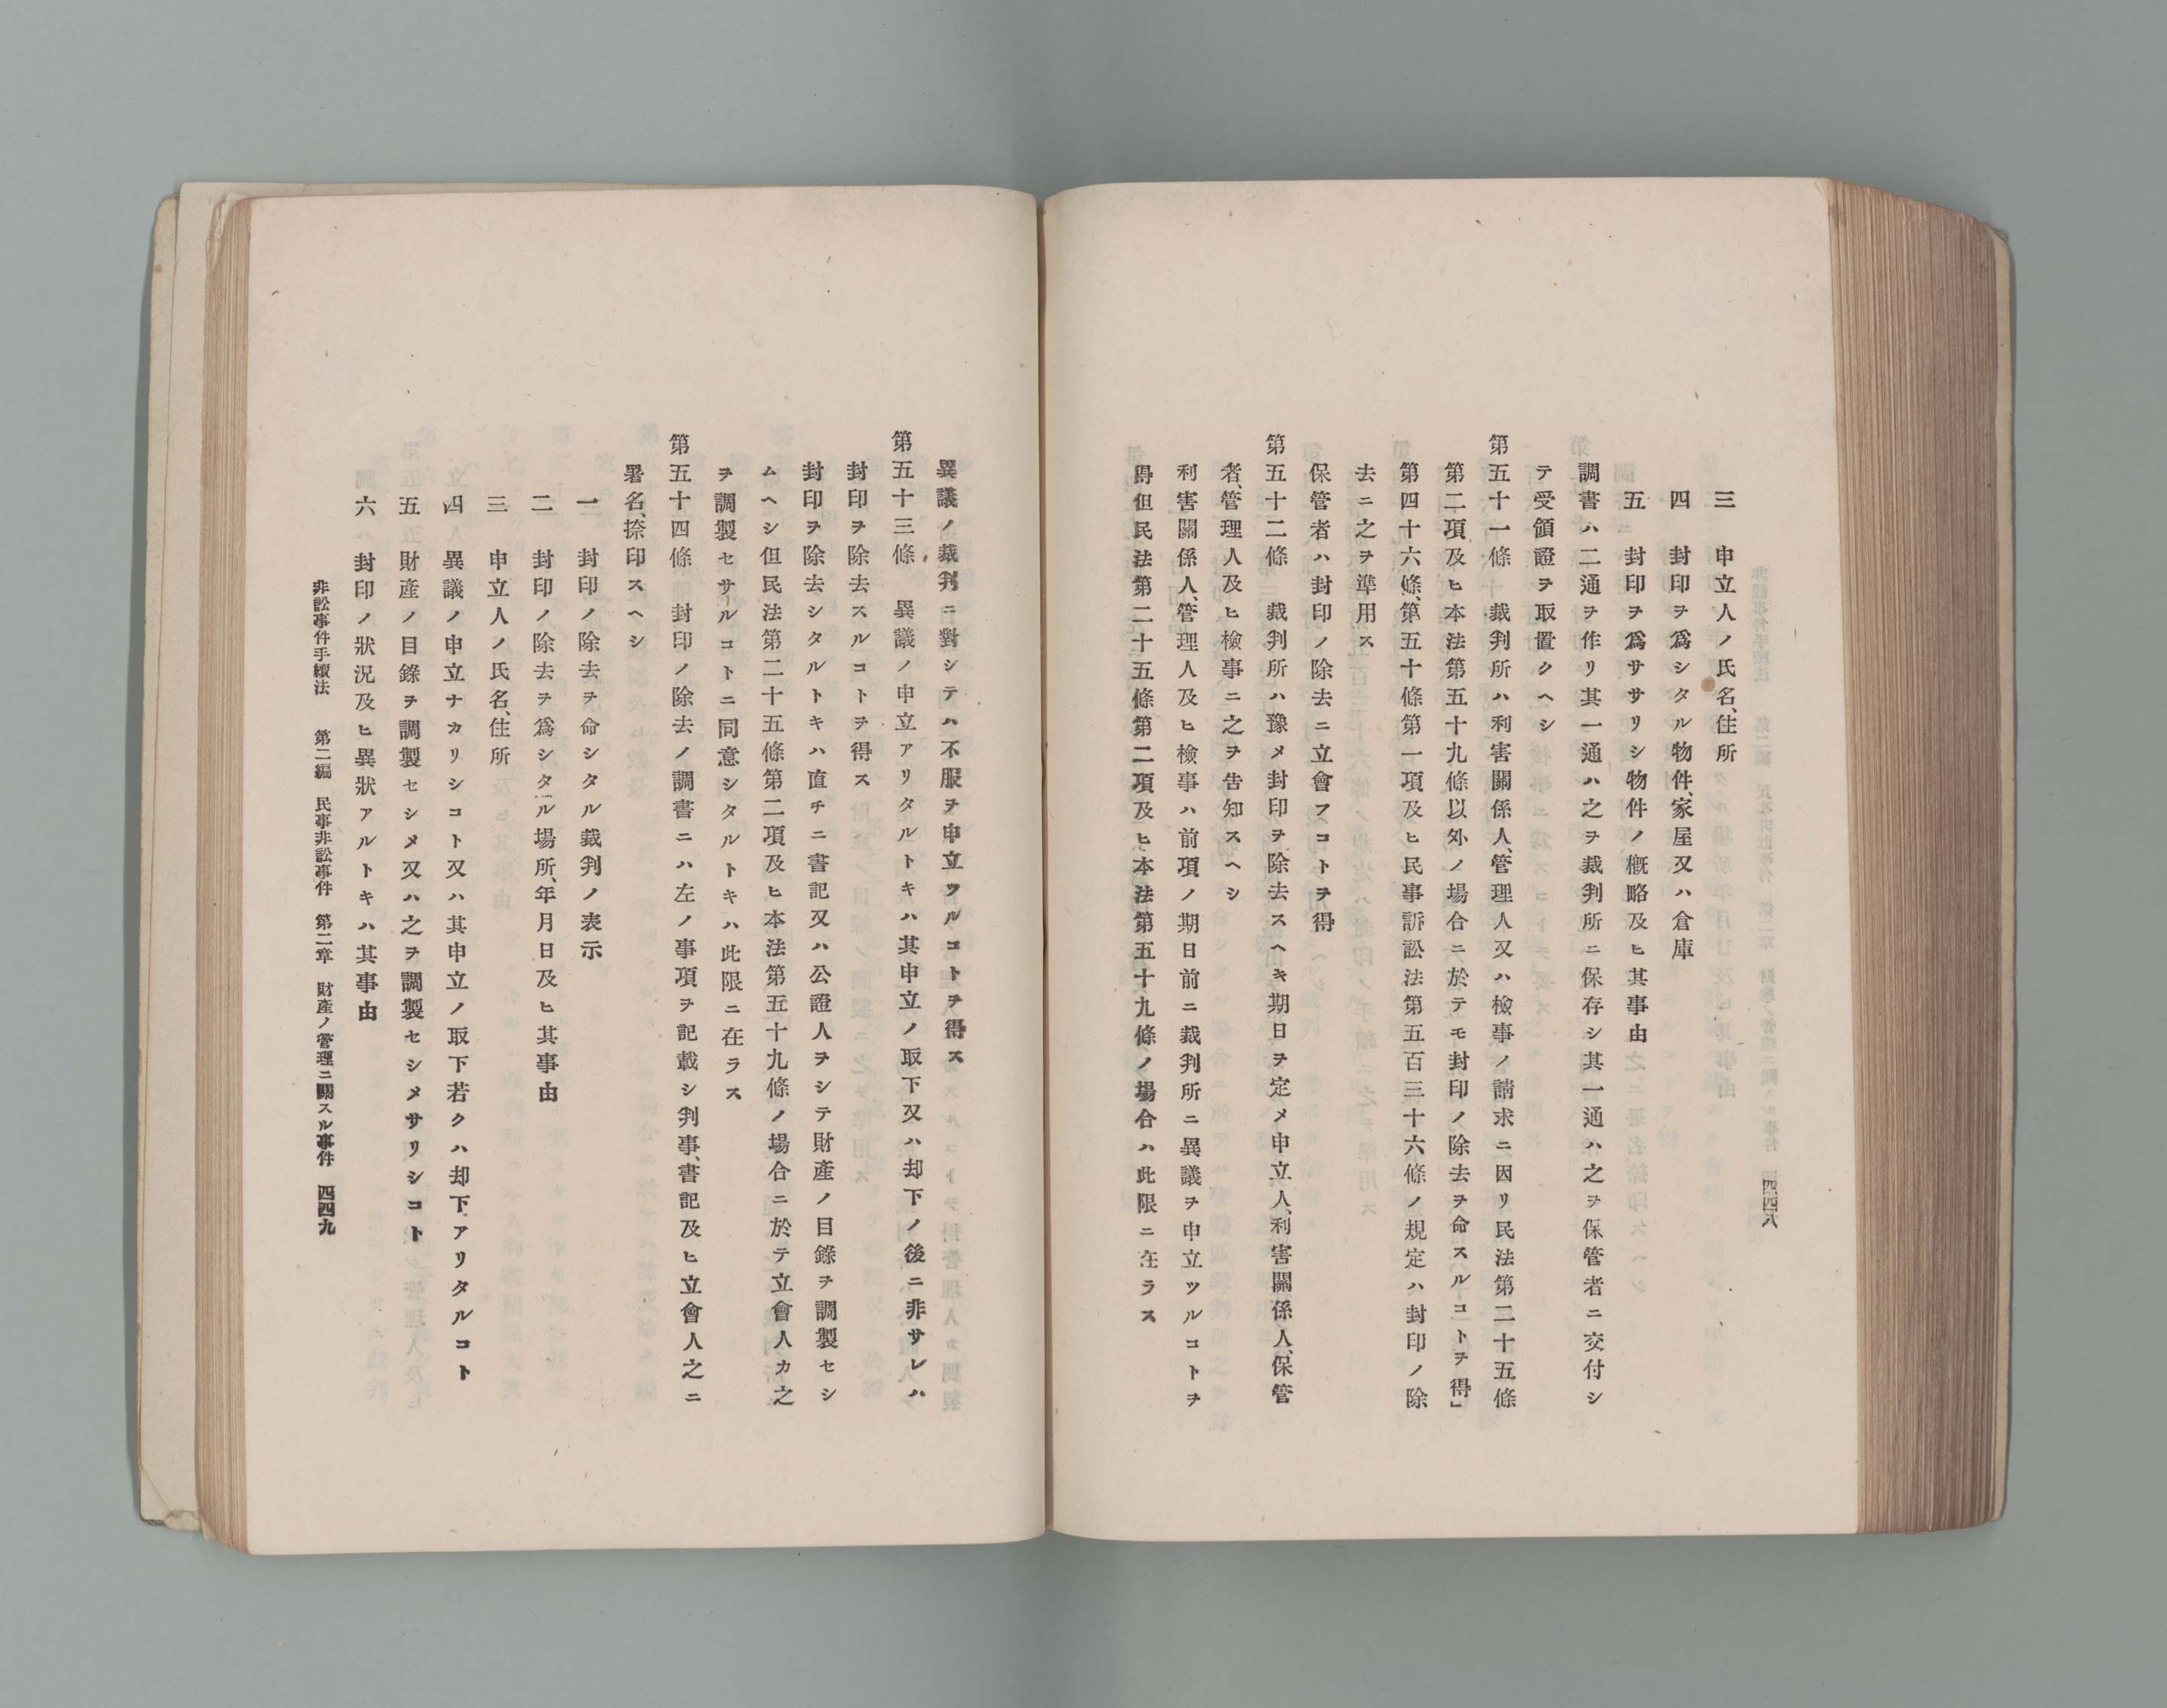 三　申立人ノ氏名、住所
四　封印ヲ爲シタル物件、家屋又ハ倉庫
五　封印ヲ爲サヽリシ物件ノ概略及ヒ其事由
調書ハ二通ヲ作リ其一通ハ之ヲ裁判所ニ保存シ其一通ハ之ヲ保管者ニ交付シ
テ受領證ヲ取置クヘシ
第五十一條　裁判所ハ利害關係人、管理人又ハ檢事ノ請求ニ因リ民法第二十五條
第二項及ヒ本法第五十九條以外ノ場合ニ於テモ封印ノ除去ヲ命スルコトヲ得」
第四十六條、第五十條第一項及ヒ民事訴訟法第五百三十六條ノ規定ハ封印ノ除
去ニ之ヲ準用ス
保管者ハ封印ノ除去ニ立會フコトヲ得
第五十二條　裁判所ハ豫メ封印ヲ除去スヘキ期日ヲ定メ申立人、利害關係人、保管
者、管理人及ヒ檢事ニ之ヲ告知スヘシ
利害關係人、管理人及ヒ檢事ハ前項ノ期日前ニ裁判所ニ異議ヲ申立ツルコトヲ
得但民法第二十五條第二項及ヒ本法第五十九條ノ場合ハ此限ニ在ラス
四四八
異議ノ裁判ニ對シテハ不服ヲ申立ツルコトヲ得ス
第五十三條　異議ノ申立アリタルトキハ其申立ノ取下又ハ却下ノ後ニ非サレハ
封印ヲ除去スルコトヲ得ス
封印ヲ除去シタルトキハ直チニ書記又ハ公證人ヲシテ財產ノ目錄ヲ調製セシ
ムヘシ但民法第二十五條第二項及ヒ本法第五十九條ノ場合ニ於テ立會人カ之
ヲ調製セサルコトニ同意シタルトキハ此限ニ在ラス
第五十四條　封印ノ除去ノ調書ニハ左ノ事項ヲ記載シ判事、書記及ヒ立會人之ニ
署名、捺印スヘシ
一　封印ノ除去ヲ命シタル裁判ノ表示
二　封印ノ除去ヲ爲シタル場所、年月日及ヒ其事由
三　申立人ノ氏名、住所
四　異議ノ申立ナカリシコト又ハ其申立ノ取下若クハ却下アリタルコト
五　財產ノ目錄ヲ調製セシメ又ハ之ヲ調製セシメサリシコト
六　封印ノ狀況及ヒ異狀アルトキハ其事由
非訟事件手續法　第二編　民事非訟事件　第二章　財產ノ管理ニ關スル事件　四四九